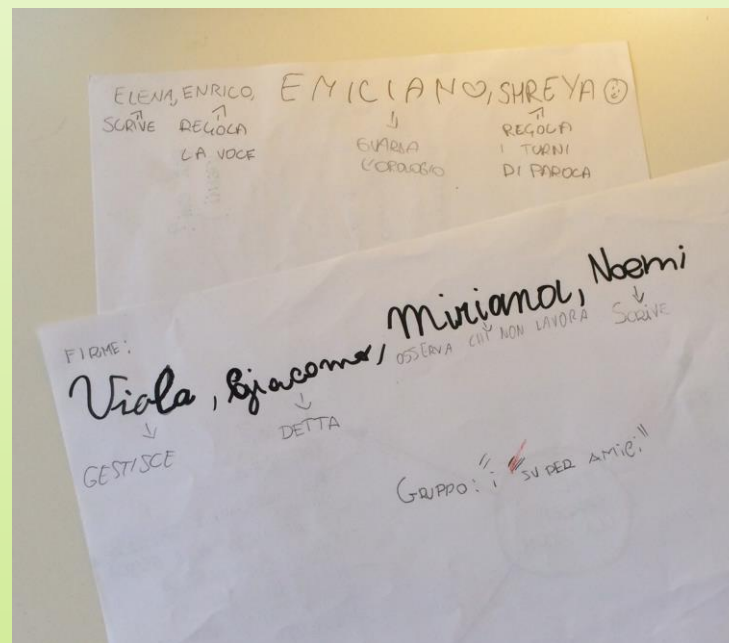 ELENA, ENRICO, EMICIANO, SHREYA
SCRIVE REGOLA GUARDA REGOLA
LA VOCE L'OROLOGIO I TURNI
DI PAROLA
FIRME:
Viola, Giacomo, Miriana, Noemi
GESTISCE DETTA OSSERVA CHI NON LAVORA SCRIVE
GRUPPO: "i SUPER AMICI"